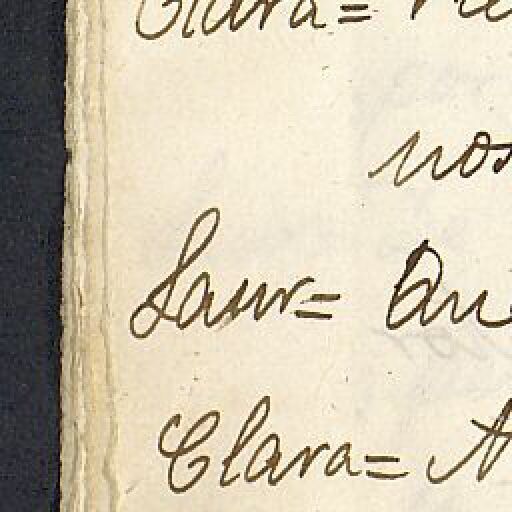 Clara=
nos
Laur= Qu
Clara= A